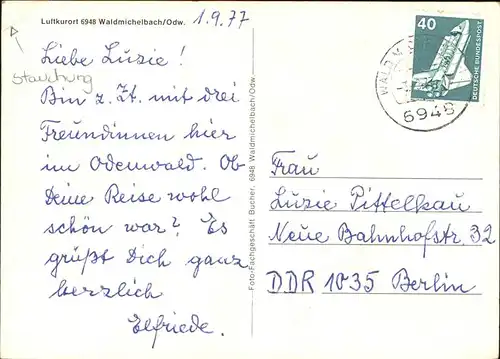 Luftkurort 6948 Waldmichelbach/Odw.
1.9.77
Liebe Luzie!
Bin z. Zt. mit drei
Freundinnen hier
im Odenwald. Ob
Deine Reise wohl
schön war? Es
grüßt Dich ganz
herzlich
Elfriede.
Foto-Fachgeschäft Bucher, 6948 Waldmichelbach/Odw.
40
DEUTSCHE BUNDESPOST
WALD-M
6948
Frau
Luzie Pittelkau
Neue Bahnhofstr. 32
DDR 1035 Berlin